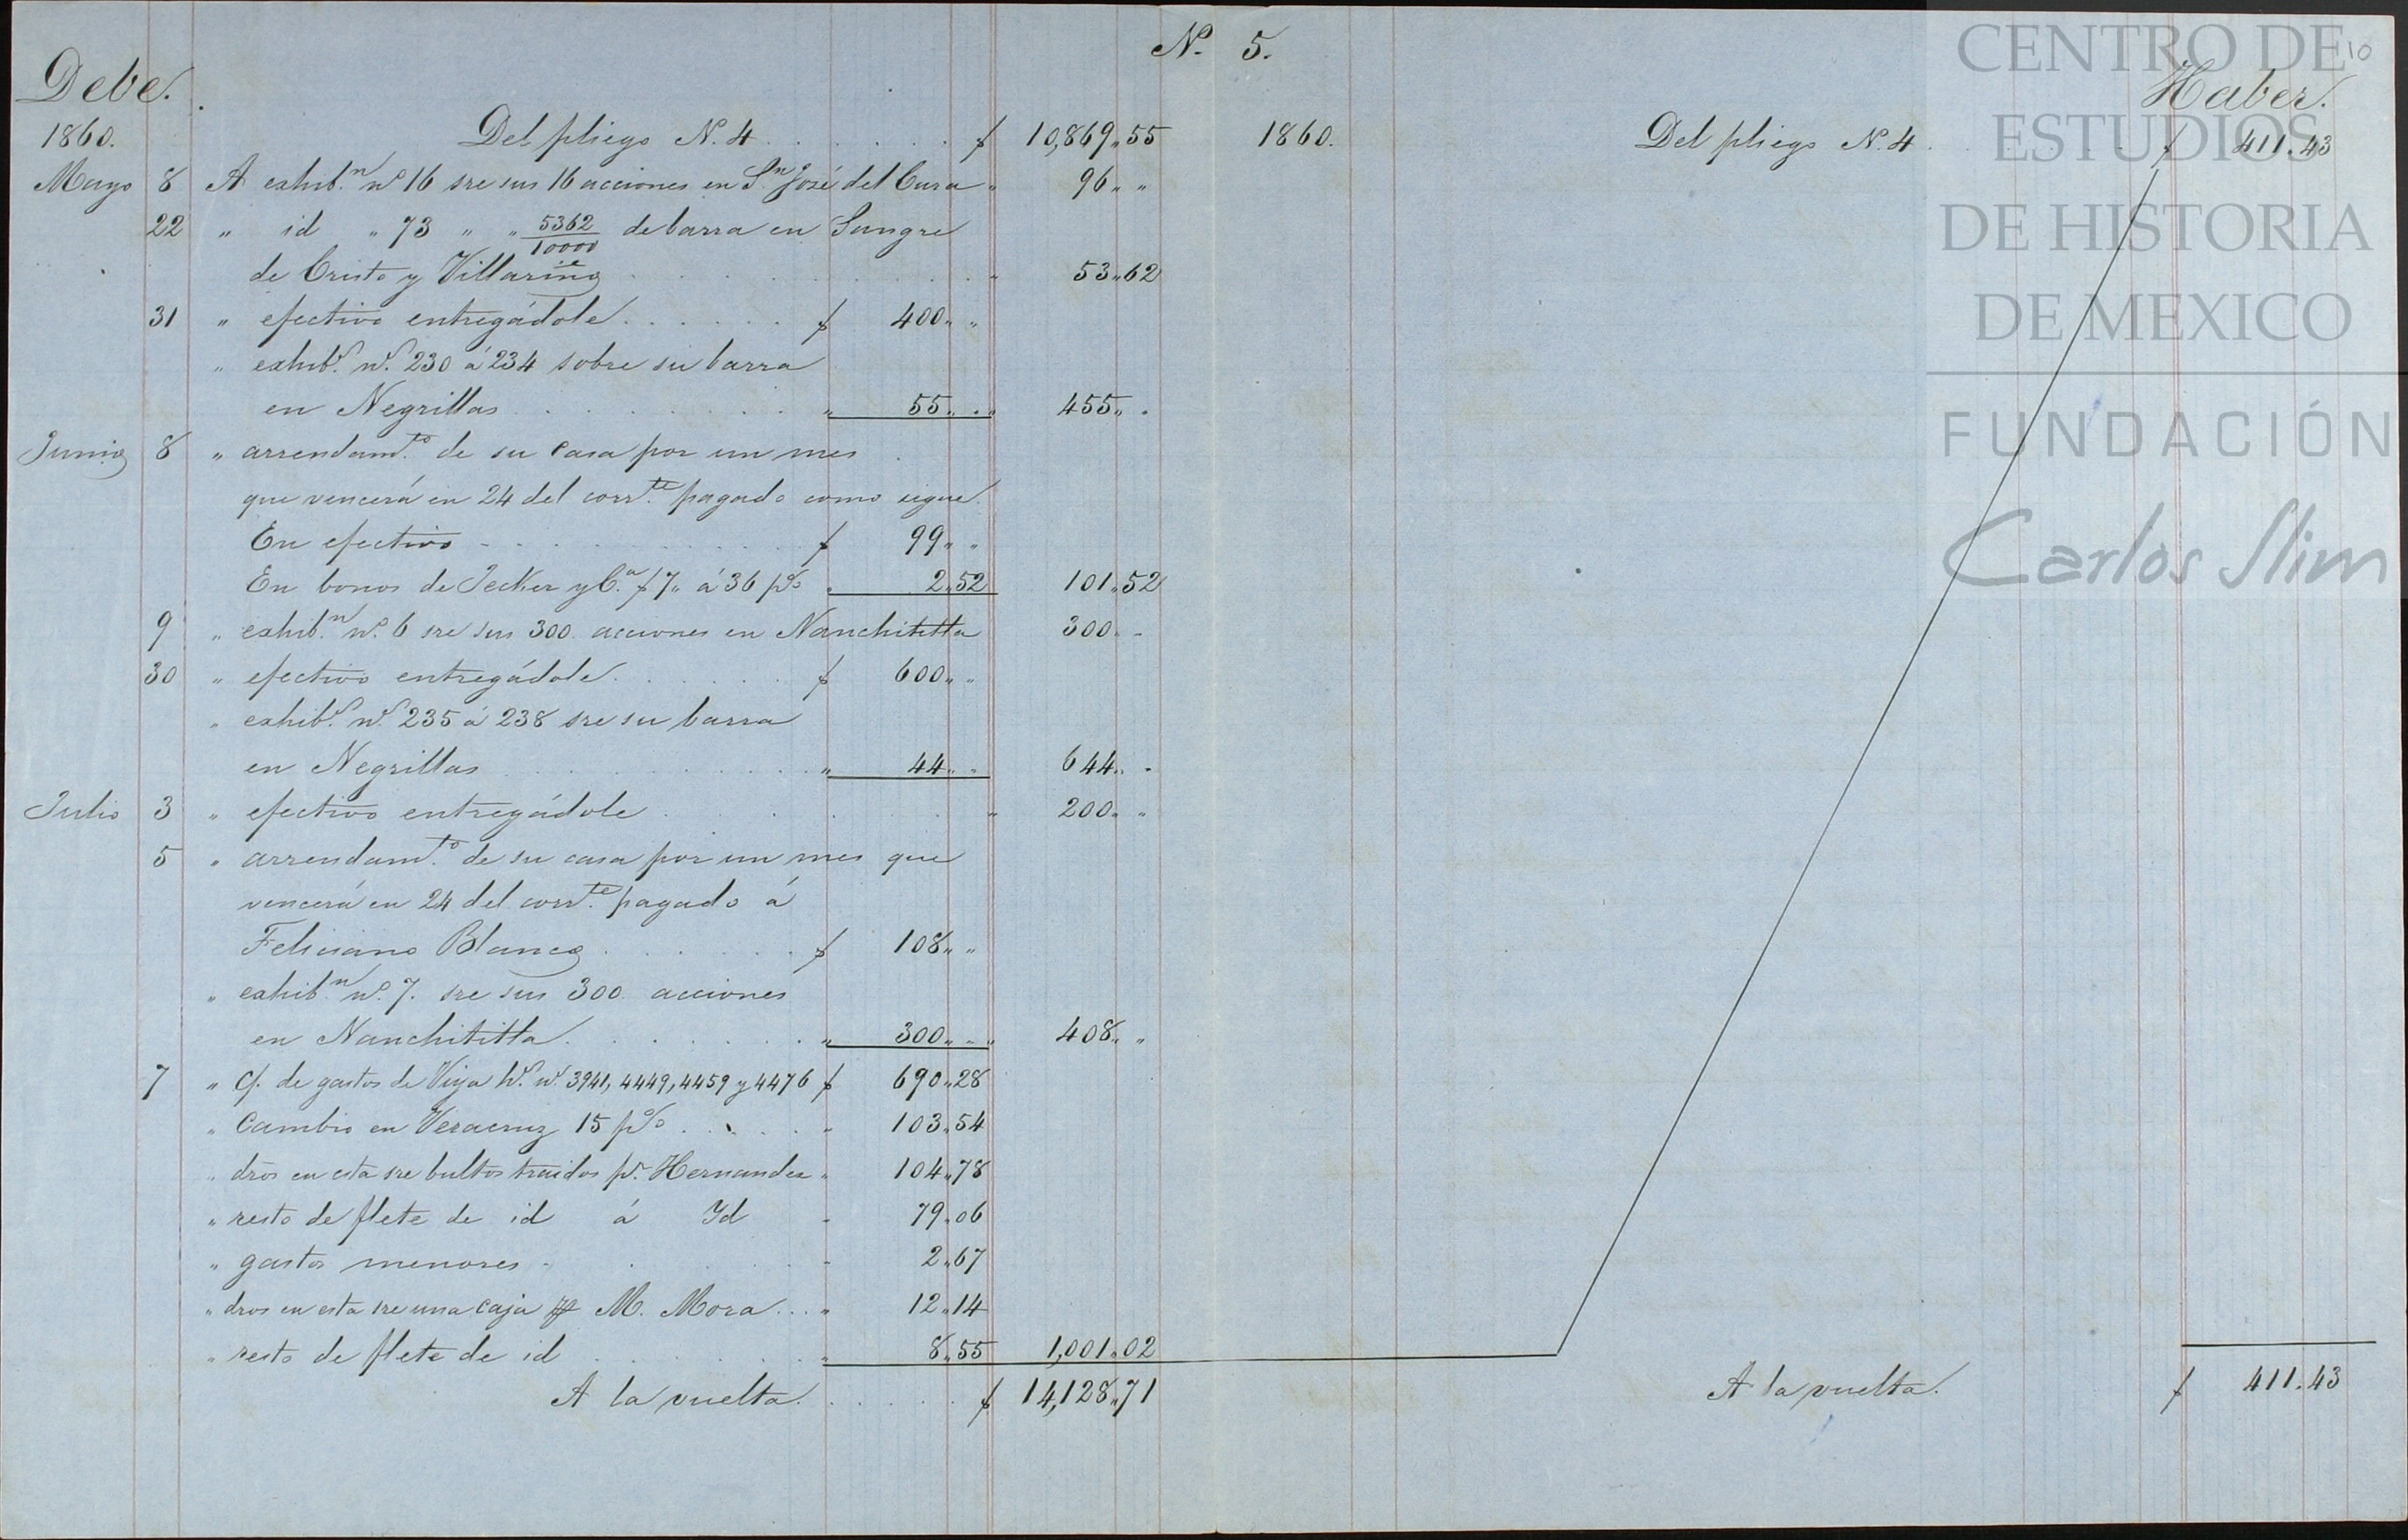 N. 5.
10
Debe.
Haber.
1860. Del pliego N. 4 . . . . . . $ 10,869,,55
Mayo 8 A exhib.n nº 16 sre sus 16 acciones en S.n José del Cura " 96,, "
22 " id " 73 " " 5362/10000 de barra en Sangre
de Cristo y Villarino . . . . . . . . " 53,,62
31 " efectivo entregádole . . . . . . $ 400,, "
" exhib.s n.s 230 á 234 sobre su barra
en Negrillas . . . . . . . . " 55,, " " 455,, "
Junio 8 " arrendam.to de su casa por un mes
que vencerá en 24 del corr.te pagado como sigue
En efectivo . . . . . . . . $ 99,, "
En bonos de Jecker y C.a $ 7,, á 36 p% " 2,,52 101,,52
9 " exhib.n nº. 6 sre sus 300 acciones en Nanchititla 300,, "
30 " efectivo entregádole . . . . . . $ 600,, "
" exhib.s n.s 235 á 238 sre su barra
en Negrillas . . . . . . . . " 44,, " 644,, "
Julio 3 " efectivo entregádole . . . . . " 200,, "
5 " arrendam.to de su casa por un mes que
vencerá en 24 del corr.te pagado á
Feliciano Blanco . . . . . . $ 108,, "
" exhib.n nº. 7. sre sus 300 acciones
en Nanchititla . . . . . . . " 300,, " " 408,, "
7 " C/. de gastos de Viya h.s n.s 3941, 4449, 4459 y 4476 $ 690,,28
" Cambio en Veracruz 15 p% . . . . " 103,,54
" dros en esta sre bultos traidos p.r Hernandez " 104,,78
" resto de flete de id á Yd " 79,,06
" gastos menores . . . . " 2,,67
" dros en esta sre una caja M. Mora . . . " 12,,14
" resto de flete de id . . . . . . " 8,,55 1,001,,02
A la vuelta . . . . . . $ 14,128,,71
1860. Del pliego N. 4 . . . . . $ 411.43
A la vuelta. $ 411.43
CENTRO DE
ESTUDIOS
DE HISTORIA
DE MEXICO
FUNDACIÓN
Carlos Slim